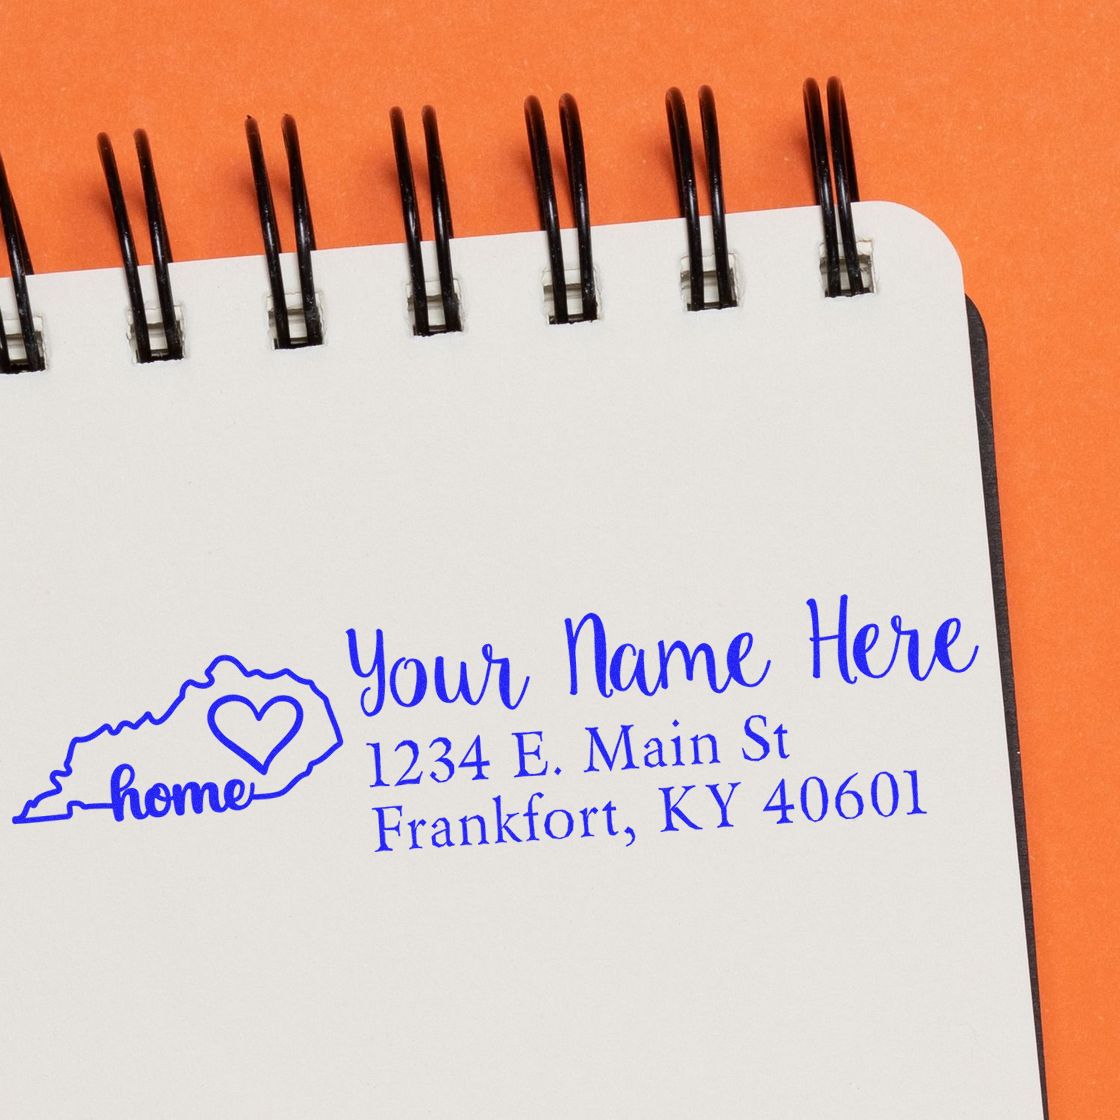 home
Your Name Here
1234 E. Main St
Frankfort, KY 40601